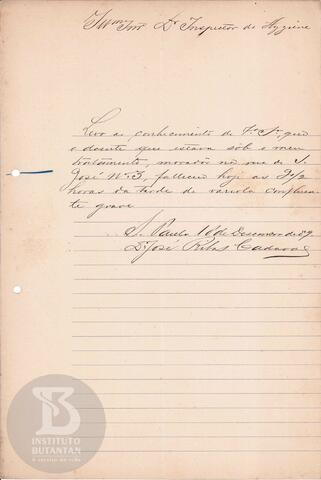 Illmo Snr Dr Inspector de Hygiene
Levo ao conhecimento de Va Sa que
o doente que estava sob o meu
tratamento, morador na rua de S.
José No 3, falleceu hoje as 3 1/2
horas da tarde de variola confluen-
te grave
S. Paulo 16 de Dezembro de 89
Dr José Ribas
INSTITUTO
BUTANTAN
A serviço da vida